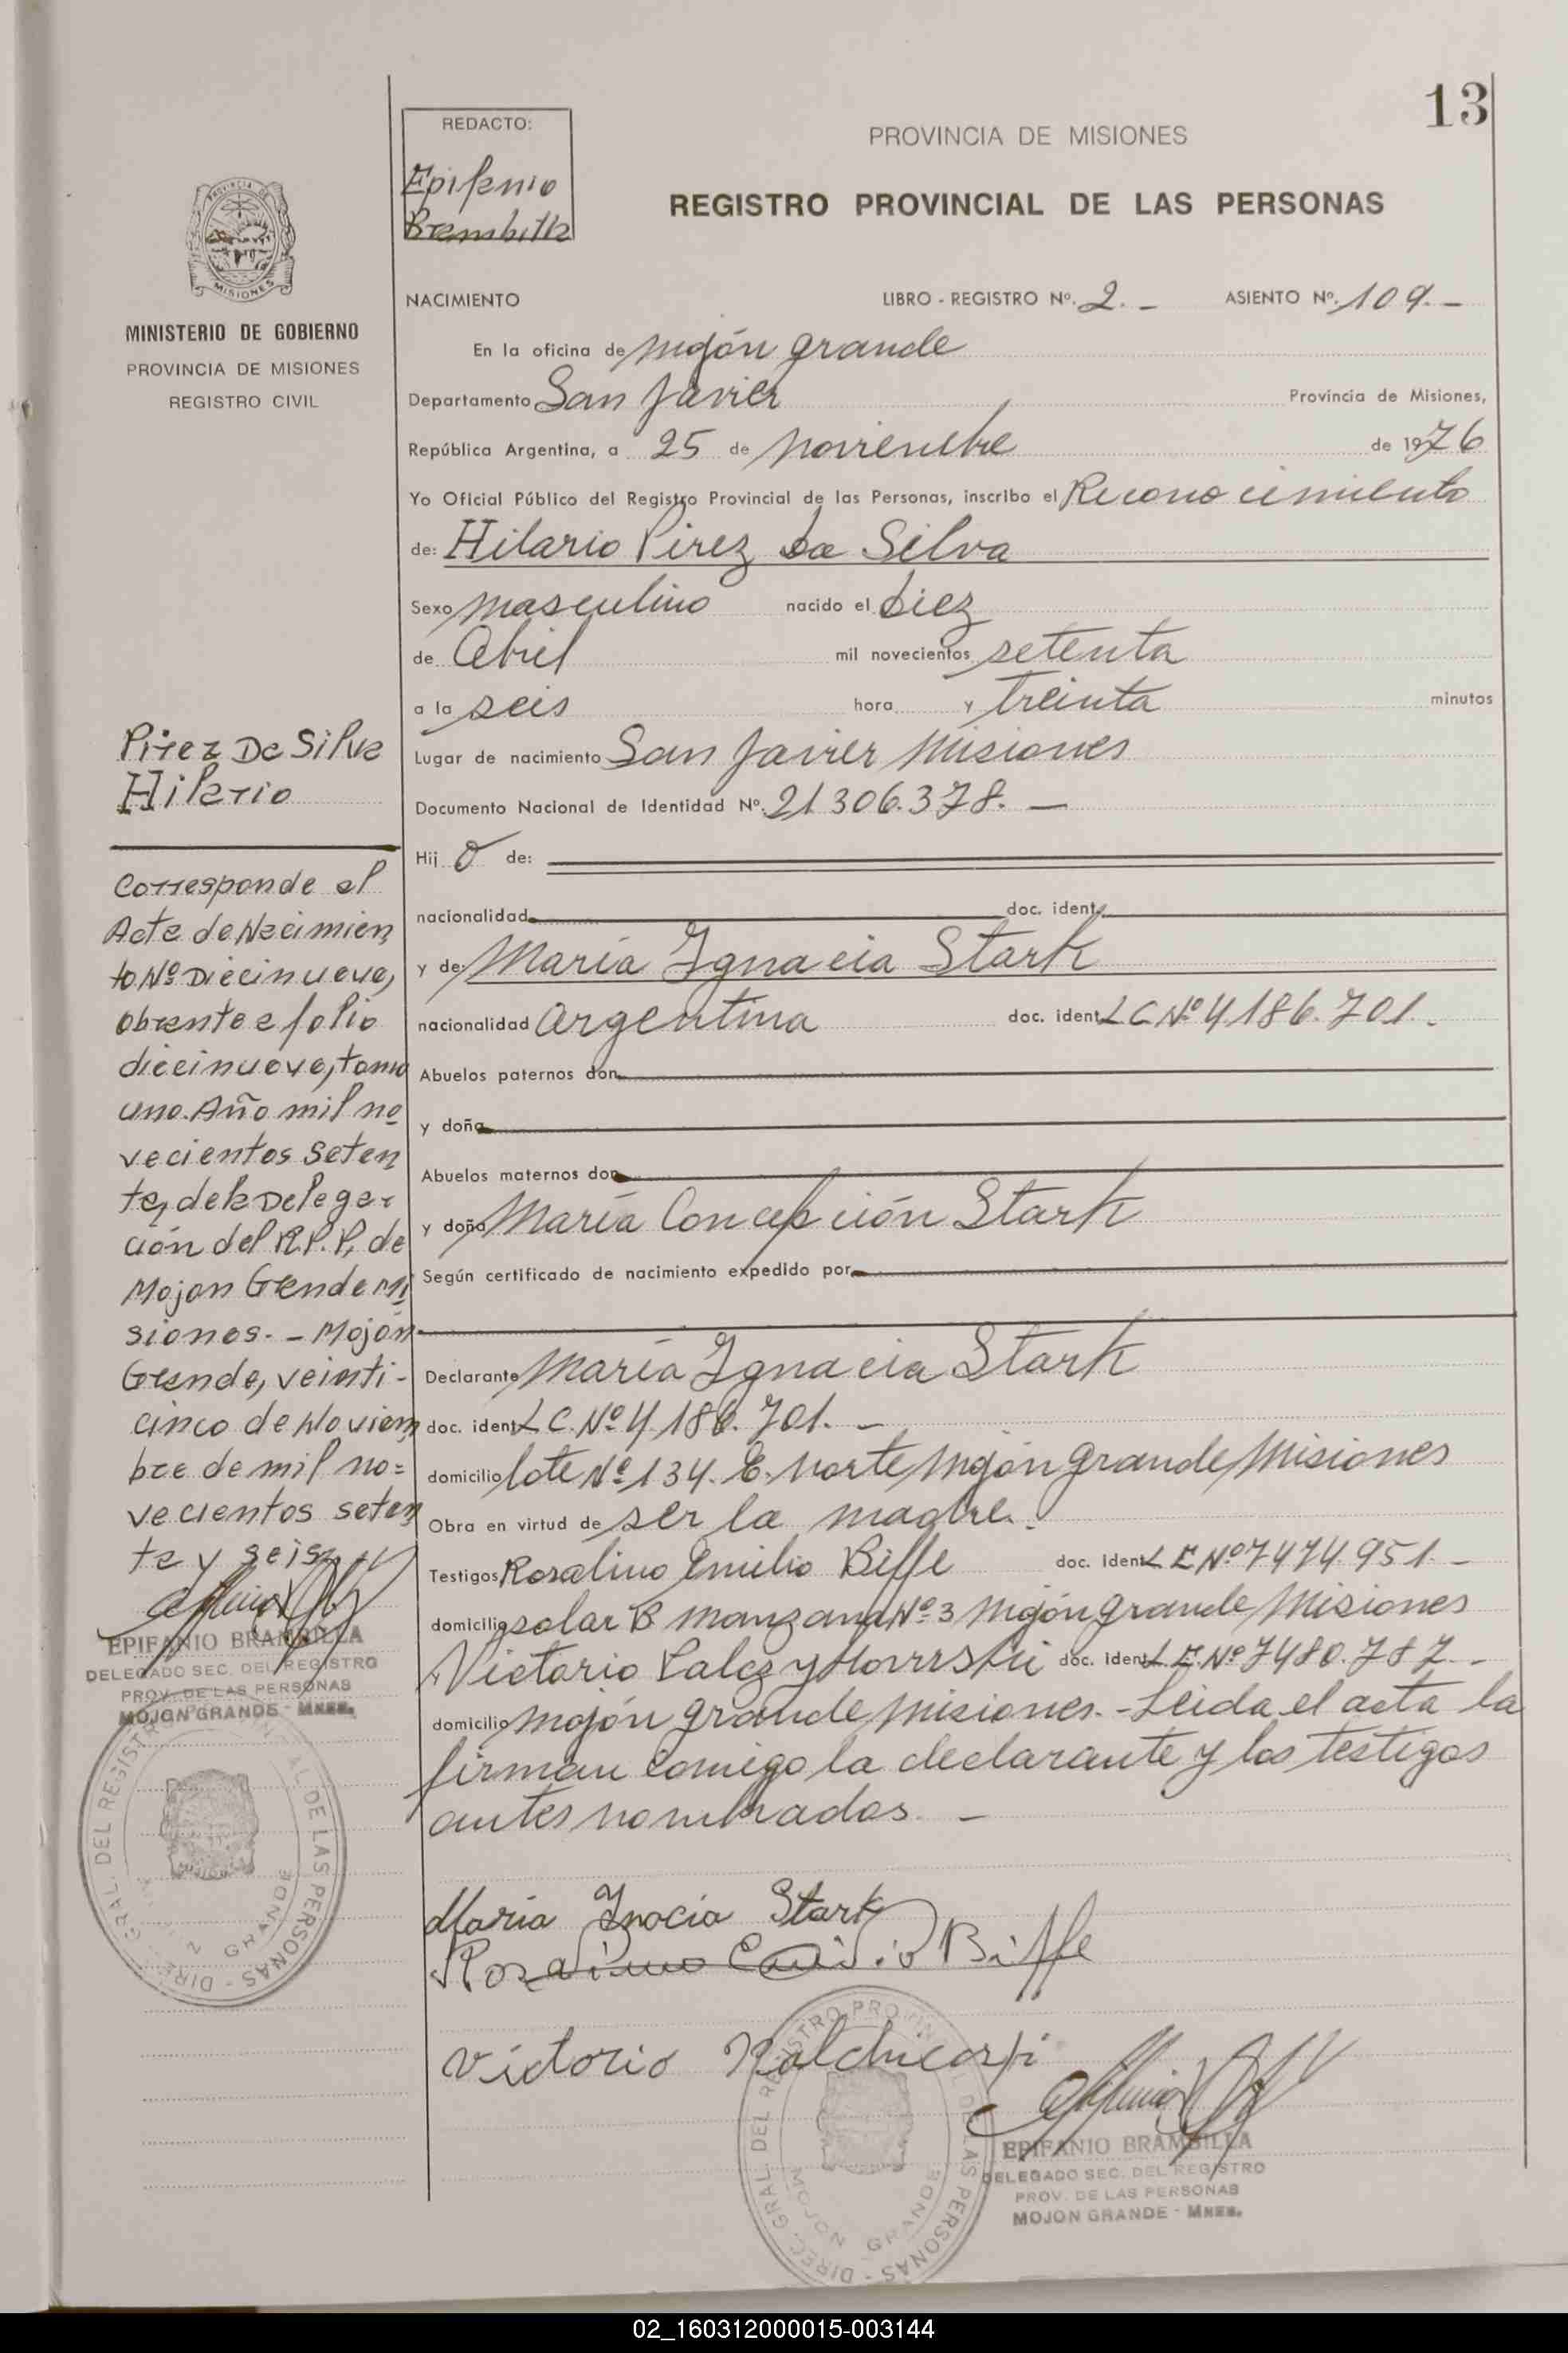 13
REDACTO:
Epifanio
Brambilla
PROVINCIA DE MISIONES
REGISTRO PROVINCIAL DE LAS PERSONAS
MISIONES
MINISTERIO DE GOBIERNO
PROVINCIA DE MISIONES
REGISTRO CIVIL
NACIMIENTO LIBRO - REGISTRO Nº. 2.- ASIENTO Nº. 109.-
En la oficina de Mojón grande
Departamento San Javier Provincia de Misiones,
República Argentina, a 25 de noviembre de 1976
Yo Oficial Público del Registro Provincial de las Personas, inscribo el Reconocimiento
de: Hilario Pirez Da Silva
Sexo masculino nacido el diez
de Abril mil novecientos setenta
a la seis hora y treinta minutos
Lugar de nacimiento San Javier Misiones
Documento Nacional de Identidad Nº. 21306.378. —
Hij o de:
nacionalidad doc. ident.
y de María Ignacia Stark
nacionalidad argentina doc. ident. LC Nº 4.186.701.-
Abuelos paternos don
y doña
Abuelos maternos don
y doña María Concepción Stark
Según certificado de nacimiento expedido por
Declarante María Ignacia Stark
doc. ident. L C. Nº 4.186.701. -
domicilio lote Nº 134. E. norte Mojón grande Misiones
Obra en virtud de ser la madre.
Testigos Rosalino Emilio Biffe doc. Ident. L E Nº 7474.951.-
domicilio solar B manzana Nº 3 Mojón grande Misiones
Victorio doc. Ident. L.E. Nº 7480.787.-
domicilio Mojón grande Misiones.- Leida el acta la
firman comigo la declarante y los testigos
antes nombrados. -
Pirez Da Silva
Hilario
Corresponde al
Acta de Nacimien
to Nº Diecinueve,
obrante a folio
diecinueve, tomo
uno. Año mil no
vecientos seten
ta, de la Delega-
ción del R.P.P. de
Mojon Grande Mi
siones. - Mojón
Grande, veinti-
cinco de Noviem
bre de mil no=
vecientos seten
ta y seis
EPIFANIO BRAMBILLA
DELEGADO SEC. DEL REGISTRO
PROV. DE LAS PERSONAS
MOJON GRANDE - MNES.
DIREC. GRAL. DEL REGISTRO PROVINCIAL DE LAS PERSONAS
MOJON GRANDE
María Inocia Stark
Rosalino Emilio Biffe
Victorio
DIREC. GRAL. DEL REGISTRO PROVINCIAL DE LAS PERSONAS
MOJON GRANDE
EPIFANIO BRAMBILLA
DELEGADO SEC. DEL REGISTRO
PROV. DE LAS PERSONAS
MOJON GRANDE - MNES.
02_160312000015-003144